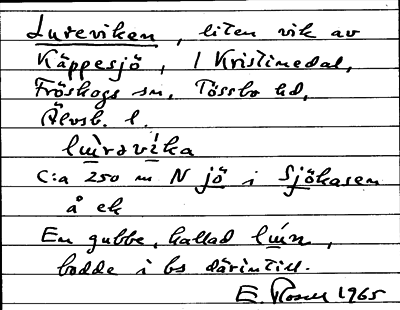 Lureviken, liten vik av
Käppesjö, i Kristinedal,
Fröskogs sn, Tössbo hd,
Älvsb. l.
C:a 250 m N jö i Sjökasen
å ek
En gubbe, kallad
bodde i bs därintill.
E. 1965